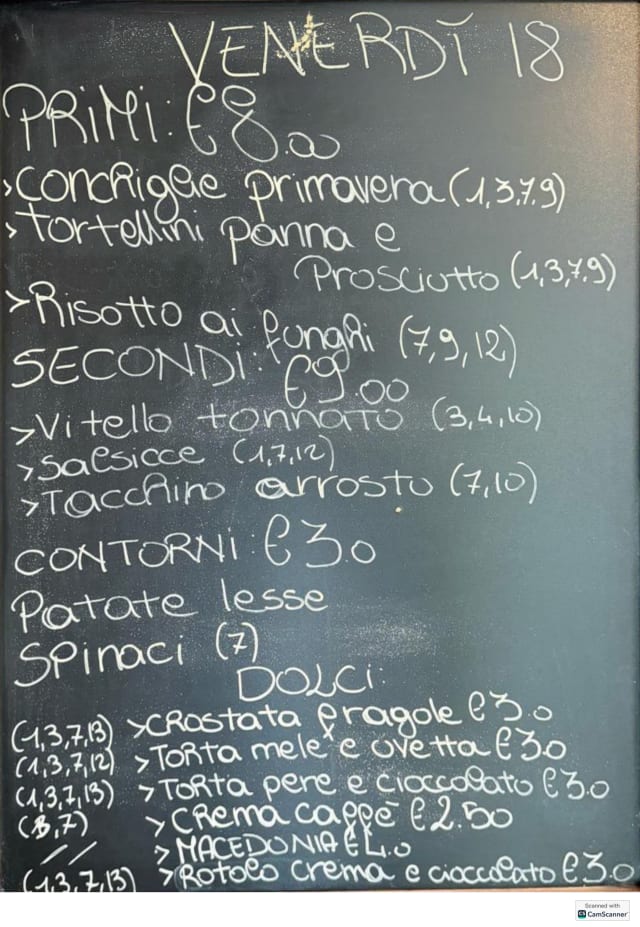 VENERDÌ 18
PRIMI: €8.00
>CONCHIGLIE primavera (1,3,7,9)
>TORTELLINI panna e
Prosciutto (1,3,7,9)
>Risotto ai funghi (7,9,12)
SECONDI: €9.00
>Vitello tonnato (3,4,10)
>Salsicce (1,7,12)
>Tacchino arrosto (7,10)
CONTORNI: €3.0
Patate lesse
Spinaci (7)
DOLCI:
(1,3,7,13) >CROSTATA fragole €3.0
(1,3,7,12) >TORTA mele e uvetta €3.0
(1,3,7,13) >TORTA pere e cioccolato €3.0
(3,7) >CREMA caffè €2.50
// >MACEDONIA €4.0
(1,3,7,13) >ROTOLO crema e cioccolato €3.0
Scanned with
CS CamScanner